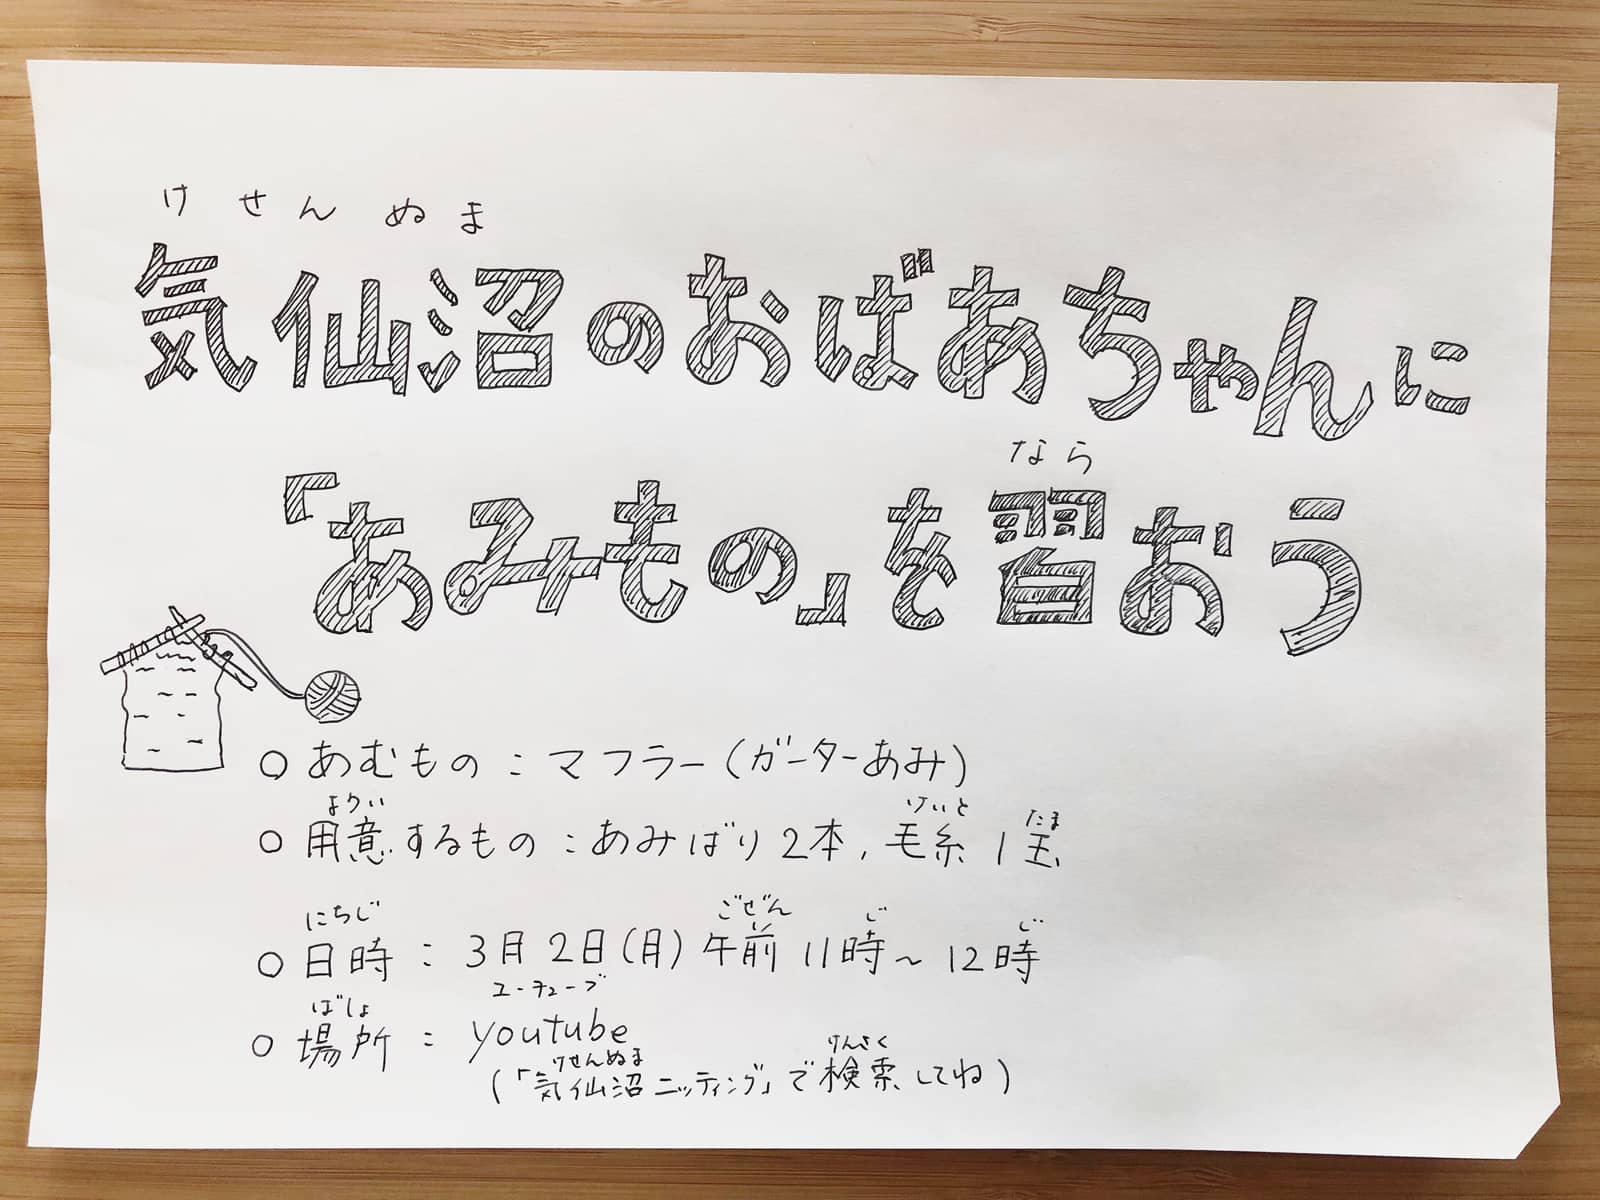 けせんぬま
気仙沼のおばあちゃんに
なら
「あみもの」を習おう
○ あむもの：マフラー（ガーターあみ）
ようい けいと たま
○ 用意するもの：あみばり2本，毛糸1玉
にちじ ごぜん じ じ
○ 日時：3月2日(月)午前11時～12時
ばしょ ユーチューブ
○ 場所：youtube
けせんぬま けんさく
（「気仙沼ニッティング」で検索してね）